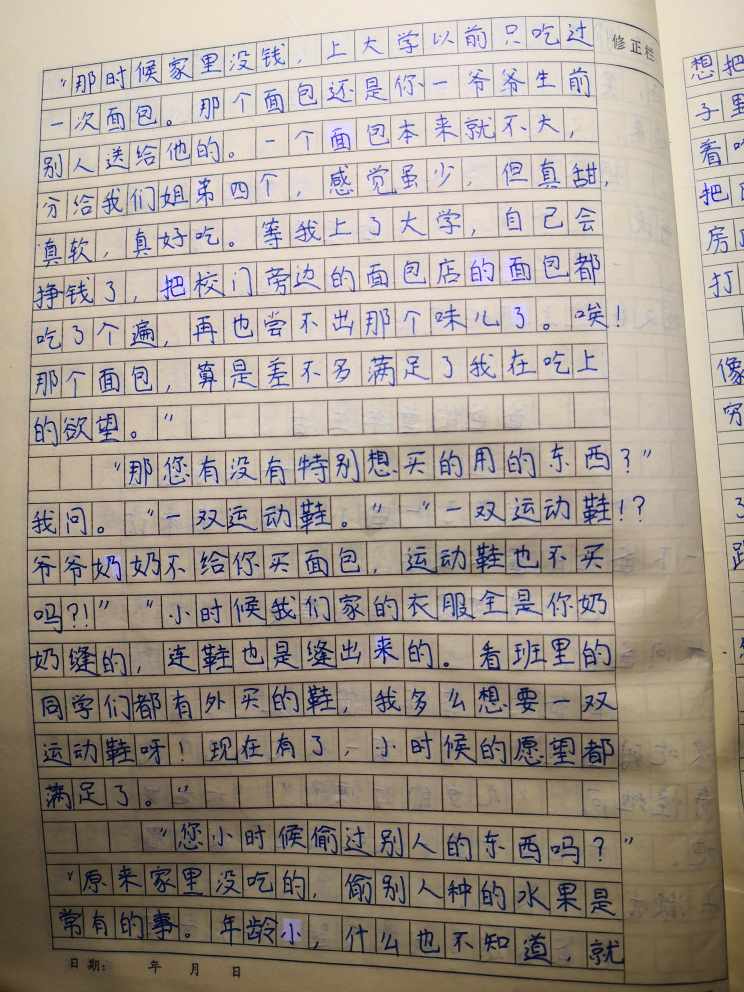 “那时候家里没钱，上大学以前只吃过
一次面包。那个面包还是你一爷爷生前
别人送给他的。一个面包本来就不大，
分给我们姐弟四个，感觉虽少，但真甜，
真软，真好吃。等我上了大学，自己会
挣钱了，把校门旁边的面包店的面包都
吃了个遍，再也尝不出那个味儿了。唉！
那个面包，算是差不多满足了我在吃上
的欲望。”
“那您有没有特别想买的用的东西？”
我问。“一双运动鞋。”“一双运动鞋！？
爷爷奶奶不给你买面包，运动鞋也不买
吗？！”“小时候我们家的衣服全是你奶
奶缝的，连鞋也是缝出来的。看班里的
同学们都有外买的鞋，我多么想要一双
运动鞋呀！现在有了，小时候的愿望都
满足了。”
“您小时候偷过别人的东西吗？”
“原来家里没吃的，偷别人种的水果是
常有的事。年龄小，什么也不知道，就
日期： 年 月 日
修正栏
想把
子里
着
把
房
打
像
穷